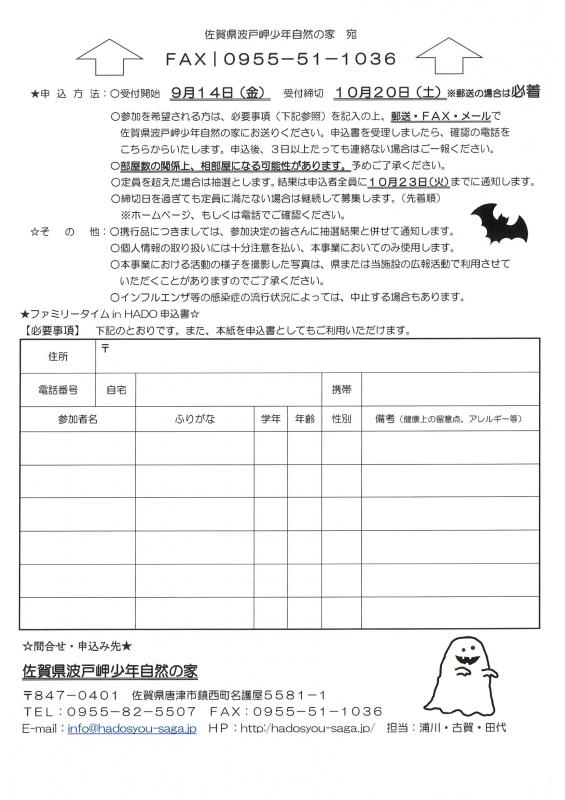 佐賀県波戸岬少年自然の家　宛
FAX|0955-51-1036
★申込方法：○受付開始　9月14日（金）　受付締切　10月20日（土）※郵送の場合は必着
○参加を希望される方は、必要事項（下記参照）を記入の上、郵送・FAX・メールで
佐賀県波戸岬少年自然の家にお送りください。申込書を受理しましたら、確認の電話を
こちらからいたします。申込後、3日以上たっても連絡ない場合はご一報ください。
○部屋数の関係上、相部屋になる可能性があります。予めご了承ください。
○定員を超えた場合は抽選とします。結果は申込者全員に10月23日(火)までに通知します。
○締切日を過ぎても定員に満たない場合は継続して募集します。（先着順）
※ホームページ、もしくは電話でご確認ください。
☆その他：○携行品につきましては、参加決定の皆さんに抽選結果と併せて通知します。
○個人情報の取り扱いには十分注意を払い、本事業においてのみ使用します。
○本事業における活動の様子を撮影した写真は、県または当施設の広報活動で利用させて
いただくことがありますのでご了承ください。
○インフルエンザ等の感染症の流行状況によっては、中止する場合もあります。
★ファミリータイム in HADO 申込書☆
【必要事項】　下記のとおりです。また、本紙を申込書としてもご利用いただけます。
住所　〒
電話番号　自宅　携帯
参加者名　ふりがな　学年　年齢　性別　備考（健康上の留意点、アレルギー等）
☆問合せ・申込み先★
佐賀県波戸岬少年自然の家
〒847-0401　佐賀県唐津市鎮西町名護屋5581-1
TEL：0955-82-5507　FAX：0955-51-1036
E-mail：info@hadosyou-saga.jp　HP：http:/hadosyou-saga.jp/　担当：浦川・古賀・田代